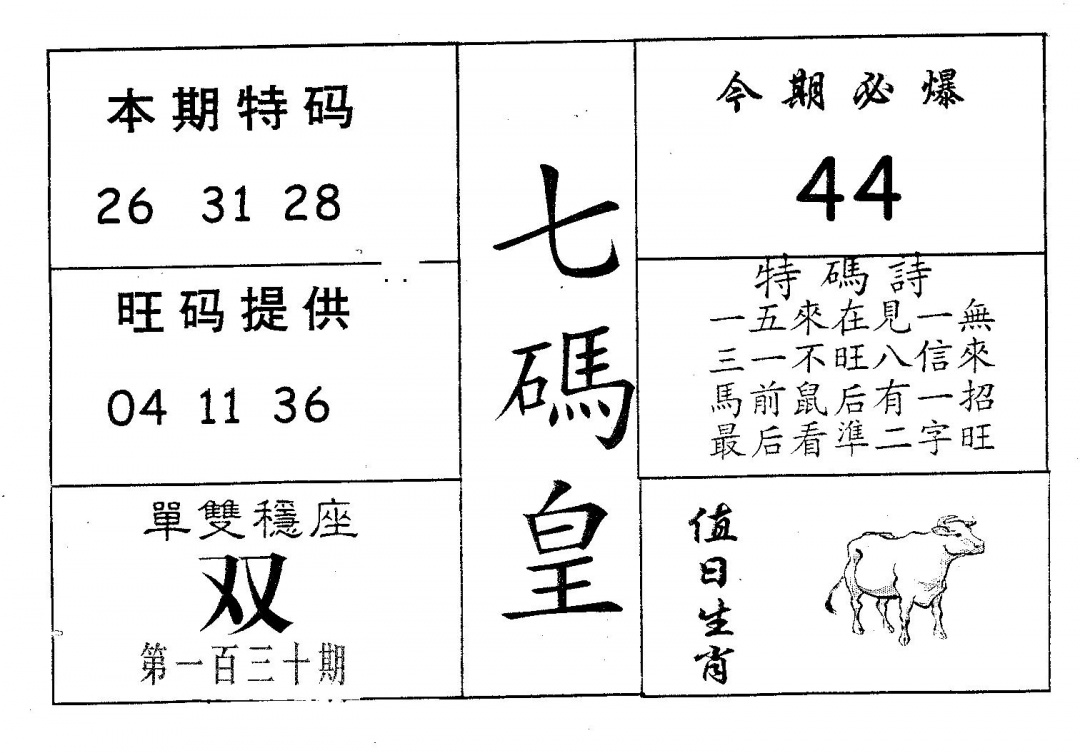 本期特码
26 31 28
旺码提供
04 11 36
單雙穩座
双
第一百三十期
七碼皇
今期必爆
44
特碼詩
一五來在見一無
三一不旺八信來
馬前鼠后有一招
最后看準二字旺
值日生肖